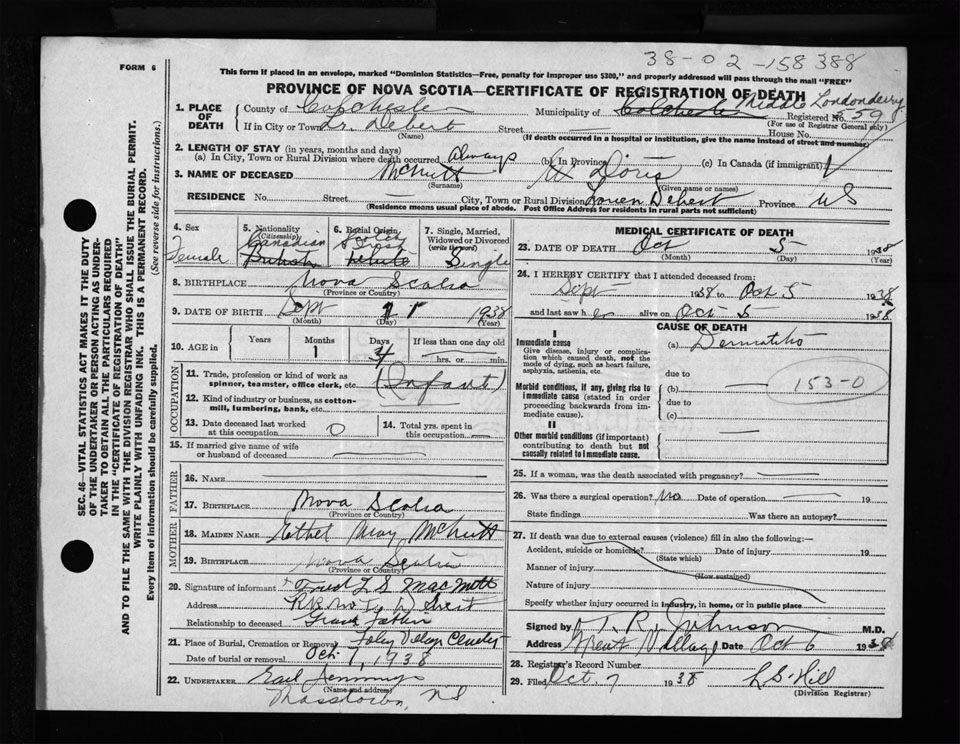 38-02-158388
FORM 6
This form if placed in an envelope, marked "Dominion Statistics—Free, penalty for improper use $300," and properly addressed will pass through the mail "FREE"
PROVINCE OF NOVA SCOTIA—CERTIFICATE OF REGISTRATION OF DEATH
1. PLACE OF DEATH
County of Colchester Municipality of Colchester Middle Londonderry
Registered No. 59
(For use of Registrar General only)
If in City or Town Lr. Debert Street House No.
(Name) (If death occurred in a hospital or institution, give the name instead of street and number)
2. LENGTH OF STAY (in years, months and days)
(a) In City, Town or Rural Division where death occurred Always (b) In Province (c) In Canada (if immigrant)
3. NAME OF DECEASED McNutt Doris
(Surname) (Given name or names)
RESIDENCE No. Street City, Town or Rural Division Debert Province NS
(Residence means usual place of abode. Post Office Address for residents in rural parts not sufficient)
4. Sex
Female
5. Nationality (Citizenship)
Canadian
British
6. Racial Origin
Scotch
Irish
white
7. Single, Married, Widowed or Divorced (write the word)
Single
8. BIRTHPLACE Nova Scotia
(Province or Country)
9. DATE OF BIRTH Sept 1 1938
(Month) (Day) (Year)
10. AGE in
Years Months Days If less than one day old
1 4 hrs. or min.
OCCUPATION
11. Trade, profession or kind of work as spinner, teamster, office clerk, etc. (Infant)
12. Kind of industry or business, as cotton-mill, lumbering, bank, etc.
13. Date deceased last worked at this occupation 0
14. Total yrs. spent in this occupation
15. If married give name of wife or husband of deceased
FATHER
16. NAME
17. BIRTHPLACE Nova Scotia
(Province or Country)
MOTHER
18. MAIDEN NAME Ethel May McNutt
19. BIRTHPLACE Nova Scotia
(Province or Country)
20. Signature of informant L S MacNutt
Address
Relationship to deceased Grand Father
21. Place of Burial, Cremation or Removal Foley Village Cemetery
Date of burial or removal Oct 7, 1938
22. UNDERTAKER Earl Jennings
(Name and address)
Masstown, NS
MEDICAL CERTIFICATE OF DEATH
23. DATE OF DEATH Oct 5 1938
(Month) (Day) (Year)
24. I HEREBY CERTIFY that I attended deceased from:
Sept 1938 to Oct 5 1938
and last saw her alive on Oct 5 1938
CAUSE OF DEATH
I
Immediate cause
Give disease, injury or complication which caused death, not the mode of dying, such as heart failure, asphyxia, asthenia, etc.
(a) Dermatitis
due to
Morbid conditions, if any, giving rise to immediate cause (stated in order proceeding backwards from immediate cause).
(b)
153-0
due to
(c)
II
Other morbid conditions (if important) contributing to death but not causally related to immediate cause.
25. If a woman, was the death associated with pregnancy?
26. Was there a surgical operation? no Date of operation 19
State findings Was there an autopsy?
27. If death was due to external causes (violence) fill in also the following:—
Accident, suicide or homicide? Date of injury 19
(State which)
Manner of injury
(How sustained)
Nature of injury
Specify whether injury occurred in industry, in home, or in public place
Signed by T. R. Johnson M.D.
Address Great Village Date Oct 6 1938
28. Registrar's Record Number
29. Filed Oct. 7 1938 L S Hill
(Division Registrar)
SEC. 46—VITAL STATISTICS ACT MAKES IT THE DUTY
OF THE UNDERTAKER OR PERSON ACTING AS UNDER-
TAKER TO OBTAIN ALL THE PARTICULARS REQUIRED
IN THE "CERTIFICATE OF REGISTRATION OF DEATH"
AND TO FILE THE SAME WITH THE DIVISION REGISTRAR WHO SHALL ISSUE THE BURIAL PERMIT.
WRITE PLAINLY WITH UNFADING INK. THIS IS A PERMANENT RECORD.
Every item of information should be carefully supplied. (See reverse side for instructions.)